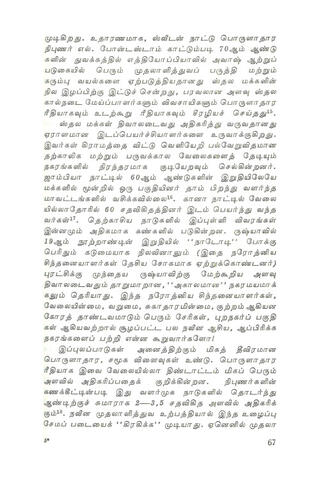 முடிகிறது. உதாரணமாக, ஸ்வீடன் நாட்டு பொருளாதார
நிபுணர் எல். போன்டஸ்டாம் காட்டும்படி 70ஆம் ஆண்டு
களின் துவக்கத்தில் எத்தியோப்பியாவில் அவாஷ் ஆற்றுப்
படுகையில் பெரும் முதலாளித்துவப் பருத்தி மற்றும்
கரும்பு வயல்களை ஏற்படுத்தியதானது ஸ்தல மக்களின்
நில இழப்பிற்கு இட்டுச் சென்றது, பரவலான அளவு ஸ்தல
கால்நடை மேய்ப்பாளர்களும் விவசாயிகளும் பொருளாதார
ரீதியாகவும் உடற்கூறு ரீதியாகவும் சீரழியச் செய்தது¹⁵.
ஸ்தல மக்கள் நிவாலடைவது அதிகரித்து வருவதானது
ஏராளமான இடப்பெயர்ச்சியாளர்களை உருவாக்குகிறது.
இவர்கள் கிராமத்தை விட்டு வெளியேறி பல்வேறுவிதமான
தற்காலிக மற்றும் பருவக்கால வேலைகளைத் தேடியும்
நகரங்களில் நிரந்தரமாக குடியேறவும் செல்கின்றனர்.
ஜாம்பியா நாட்டில் 60ஆம் ஆண்டுகளின் இறுதியிலேயே
மக்களில் மூன்றில் ஒரு பகுதியினர் தாம் பிறந்து வளர்ந்த
மாவட்டங்களில் வசிக்கவில்லை¹⁶. கானா நாட்டில் வேலை
யில்லாதோரில் 60 சதவிகிதத்தினர் இடம் பெயர்ந்து வந்த
வர்கள்¹⁷. தெற்காசிய நாடுகளில் இப்புள்ளி விவரங்கள்
இன்னமும் அதிகமாக கண்களில் படுகின்றன. ருஷ்யாவில்
19ஆம் நூற்றாண்டின் இறுதியில் "நாடோடி" போக்கு
பெரிதும் கடுமையாக நிலவினாலும் (இதை நரோத்னிய
சிந்தனையாளர்கள் தேசிய சோகமாக ஏற்றுக்கொண்டனர்)
புரட்சிக்கு முந்தைய ருஷ்யாவிற்கு மேற்கூறிய அளவு
நிவாலடைவதும் தாறுமாறான, "அகாலமான" நகரமயமாக்
கலும் தெரியாது. இந்த நரோத்னிய சிந்தனையாளர்கள்,
வேலையின்மை, வறுமை, சுகாதாரமின்மை, குற்றம் ஆகியன
கோரத் தாண்டவமாடும் பெரும் சேரிகள், புறநகர்ப் பகுதி
கள் ஆகியவற்றால் சூழப்பட்ட பல நவீன ஆசிய, ஆப்பிரிக்க
நகரங்களைப் பற்றி என்ன கூறுவார்களோ!
இப்புலப்பாடுகள் அனைத்திற்கும் மிகத் தீவிரமான
பொருளாதார, சமூக விளைவுகள் உண்டு. பொருளாதார
ரீதியாக இவை வேலையில்லா திண்டாட்டம் மிகப் பெரும்
அளவில் அதிகரிப்பதைக் குறிக்கின்றன. நிபுணர்களின்
கணக்கீட்டின்படி இது வளர்முக நாடுகளில் தொடர்ந்து
ஆண்டிற்குச் சுமாராக 2—3,5 சதவிகித அளவில் அதிகரிக்
கும்¹⁸. நவீன முதலாளித்துவ உற்பத்தியால் இந்த உழைப்பு
சேமப் படையைக் "கிரகிக்க" முடியாது. ஏனெனில் முதலா
67